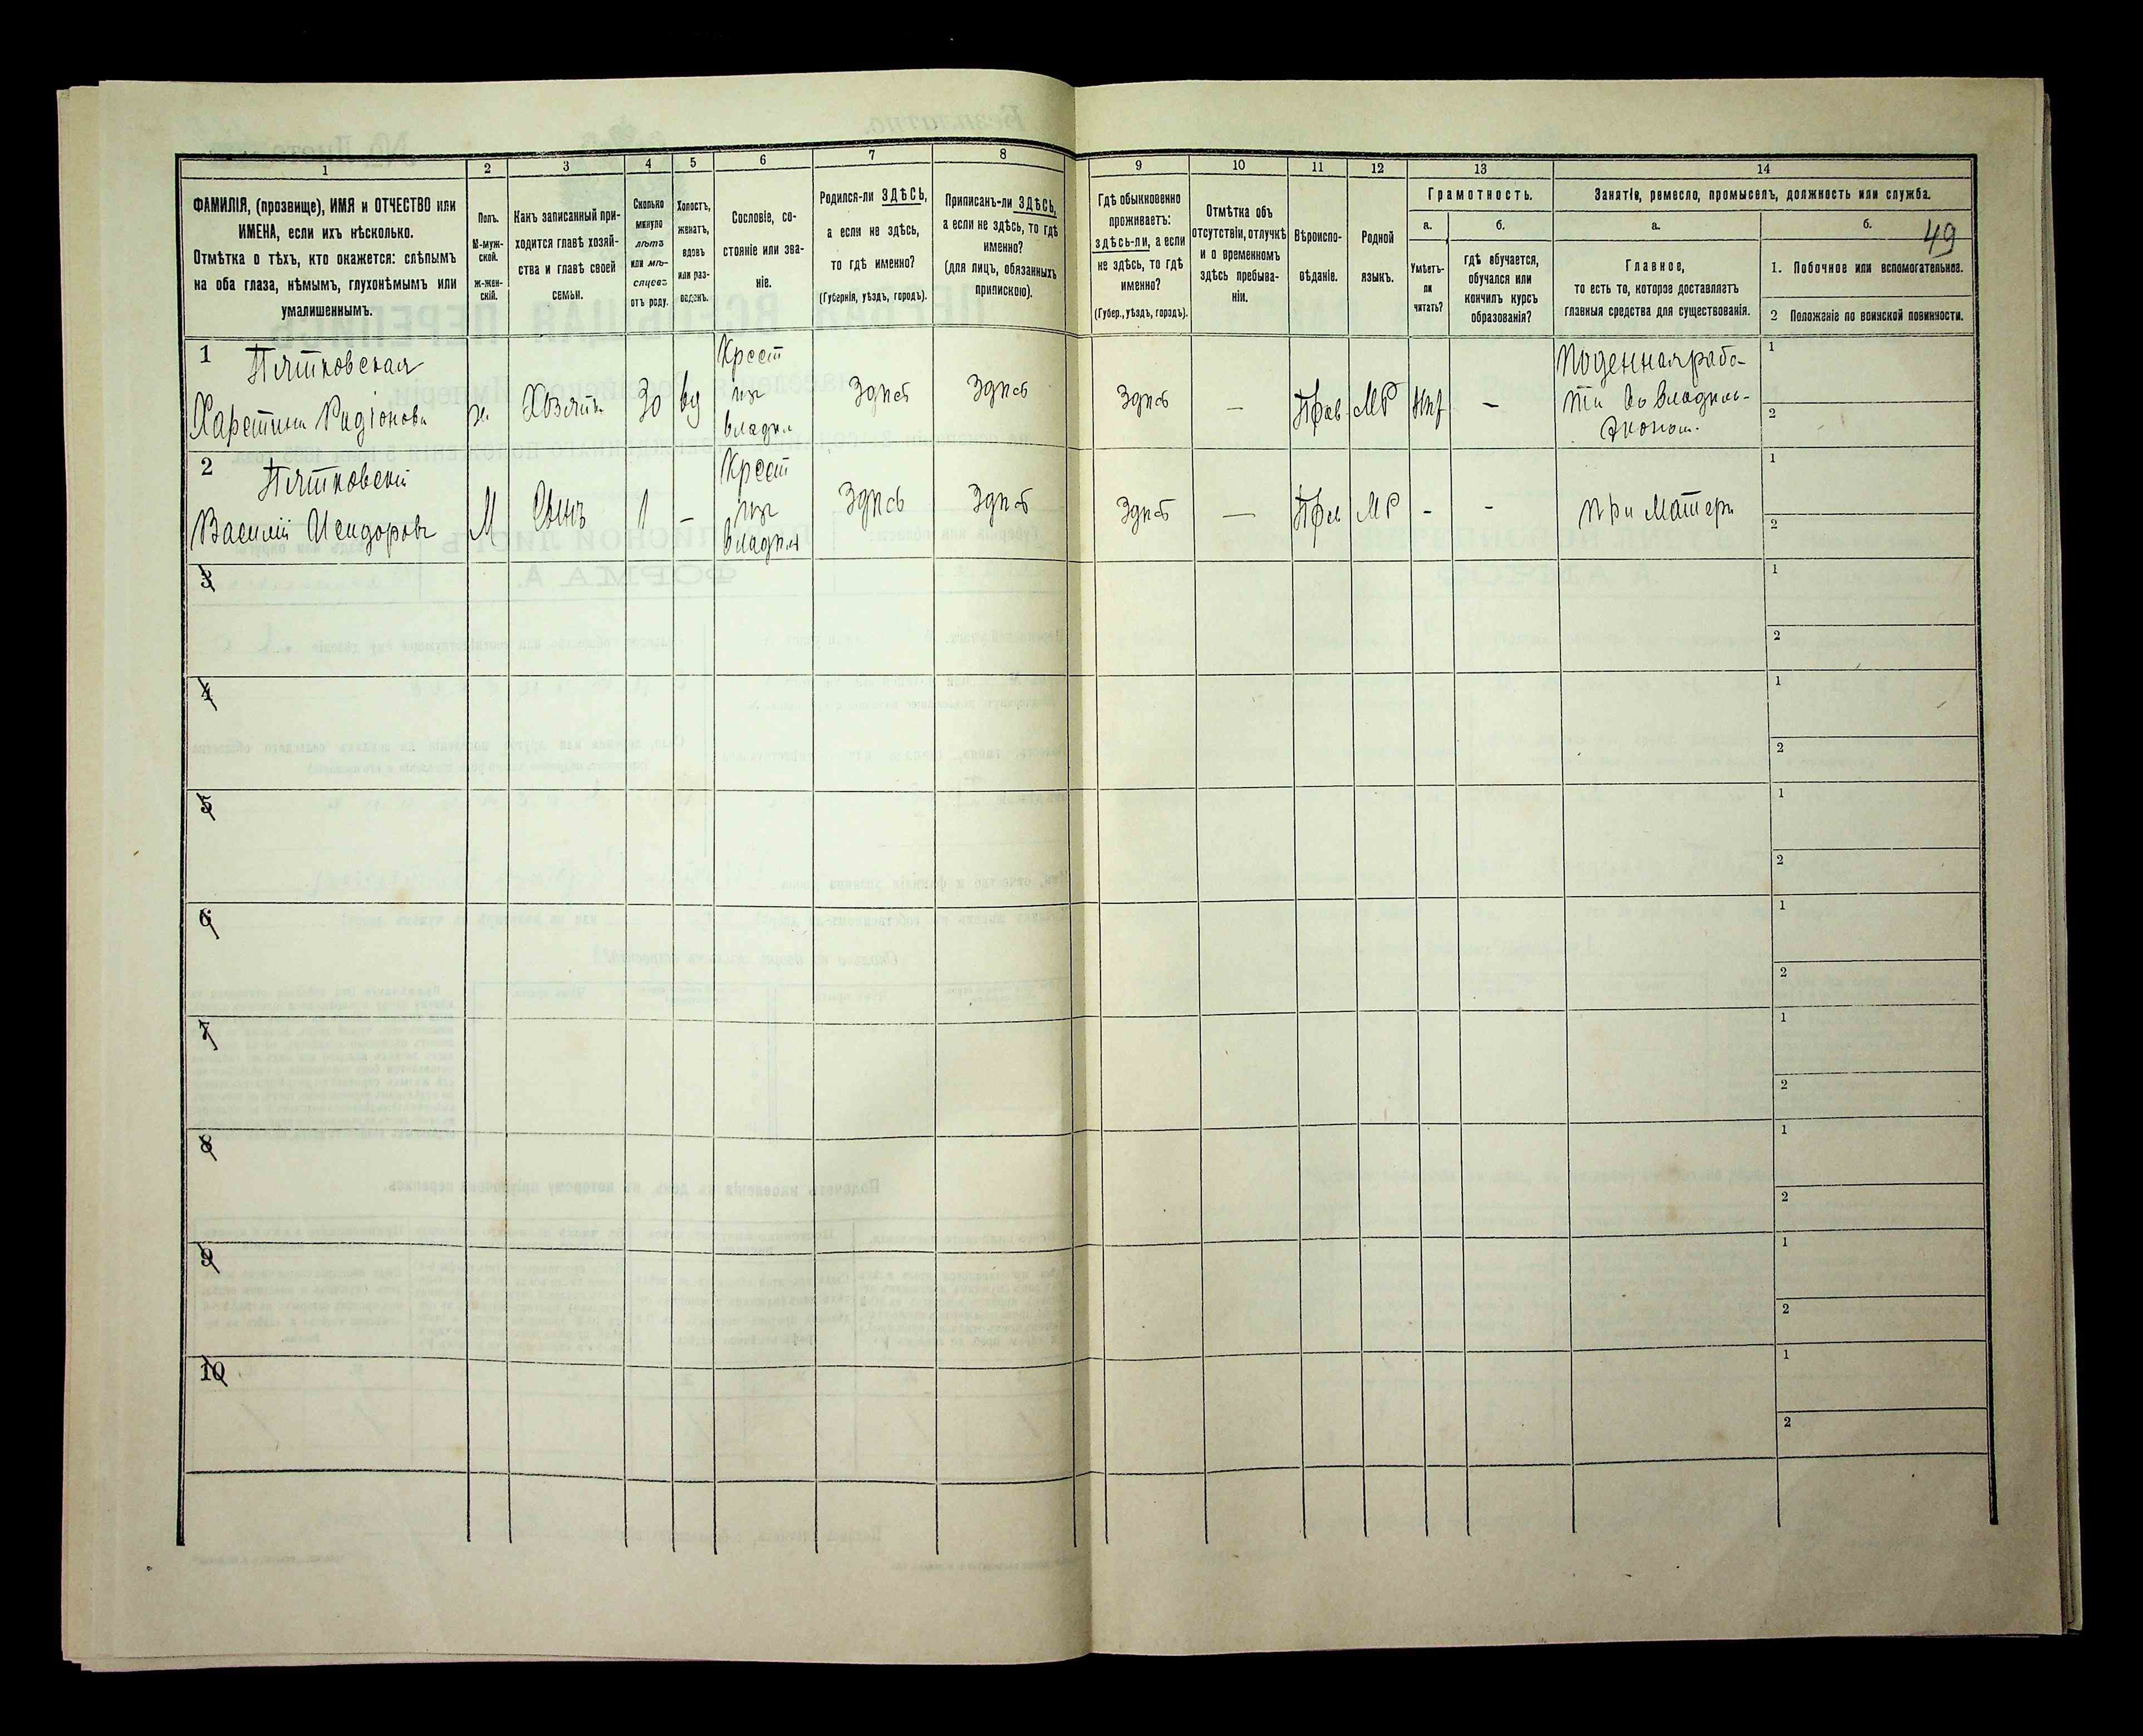 1
2
3
4
5
6
7
8
9
10
11
12
13
14
ФАМИЛІЯ, (прозвище), ИМЯ и ОТЧЕСТВО или
ИМЕНА, если ихъ нѣсколько.
Отмѣтка о тѣхъ, кто окажется: слѣпымъ
на оба глаза, нѣмымъ, глухонѣмымъ или
умалишеннымъ.
Полъ.
М-муж-
ской.
Ж-жен-
скій.
Какъ записанный при-
ходится главѣ хозяй-
ства и главѣ своей
семьи.
Сколько
минуло
лѣтъ
или мѣ-
сяцевъ
отъ роду.
Холостъ,
женатъ,
вдовъ
или раз-
веденъ.
Сословіе, со-
стояніе или зва-
ніе.
Родился-ли ЗДѢСЬ,
а если не здѣсь,
то гдѣ именно?
(Губернія, уѣздъ, городъ).
Приписанъ-ли ЗДѢСЬ,
а если не здѣсь, то гдѣ
именно?
(для лицъ, обязанныхъ
припискою).
Гдѣ обыкновенно
проживаетъ:
здѣсь-ли, а если
не здѣсь, то гдѣ
именно?
(Губер., уѣздъ, городъ).
Отмѣтка объ
отсутствіи, отлучкѣ
и о временномъ
здѣсь пребыва-
ніи.
Вѣроиспо-
вѣданіе.
Родной
языкъ.
Грамотность.
а.
Умѣетъ-
ли
читать?
б.
гдѣ обучается,
обучался или
кончилъ курсъ
образованія?
Занятіе, ремесло, промыселъ, должность или служба.
а.
Главное,
то есть то, которое доставляетъ
главныя средства для существованія.
б.
49
1. Побочное или вспомогательное.
2 Положеніе по воинской повинности.
1
Пятковская
Харетина Радіонова
ж.
Хозяйка
30
вд
Крест
из
владѣл
Здѣсь
Здѣсь
Здѣсь
—
Прав
МР
нѣт
–
Поденная рабо-
та во владѣль-
Эконом.
1
2
2
Пятковскій
Василій Исидоровъ
М
Сынъ
1
–
Крест
из
владѣл
Здѣсь
Здѣсь
Здѣсь
—
Прав
МР
-
-
при матери
1
2
3
1
2
4
1
2
5
1
2
6
1
2
7
1
2
8
1
2
9
1
2
10
1
2